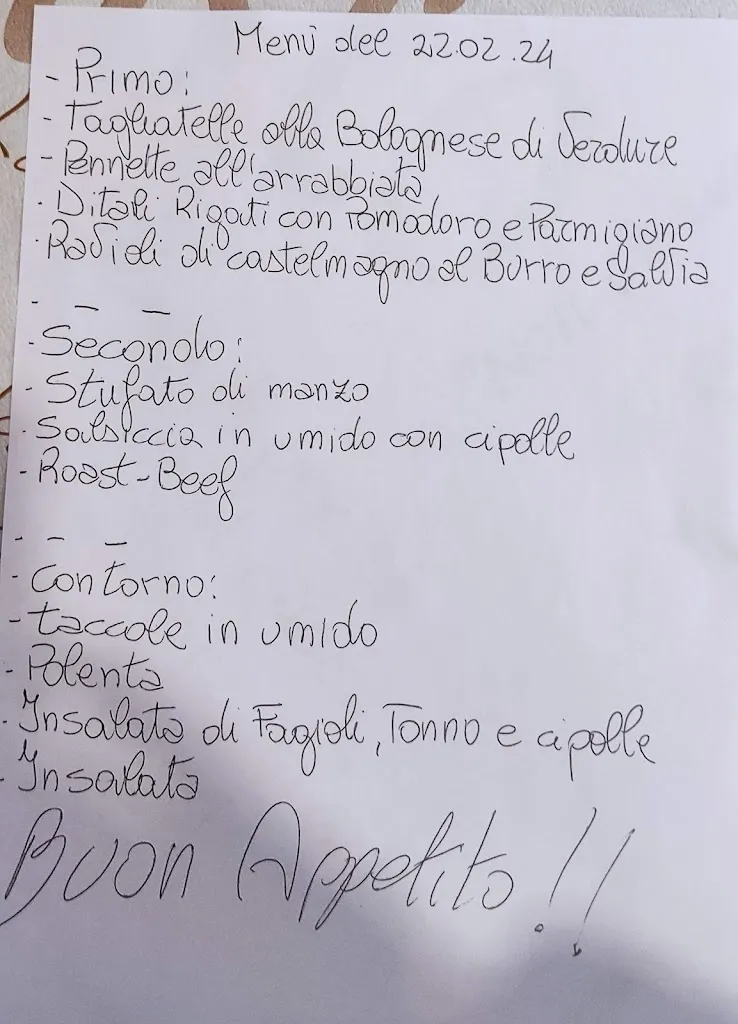 Menù del 22.02.24
- Primo:
- Tagliatelle alla Bolognese di Verdure
- Pennette all'arrabbiata
- Ditali Rigati con Pomodoro e Parmigiano
- Ravioli di castelmagno al Burro e Salvia
- - -
- Secondo:
- Stufato di manzo
- Salsiccia in umido con cipolle
- Roast-Beef
- - -
- Contorno:
- taccole in umido
- Polenta
- Insalata di Fagioli, Tonno e cipolle
- Insalata
Buon Appetito!!